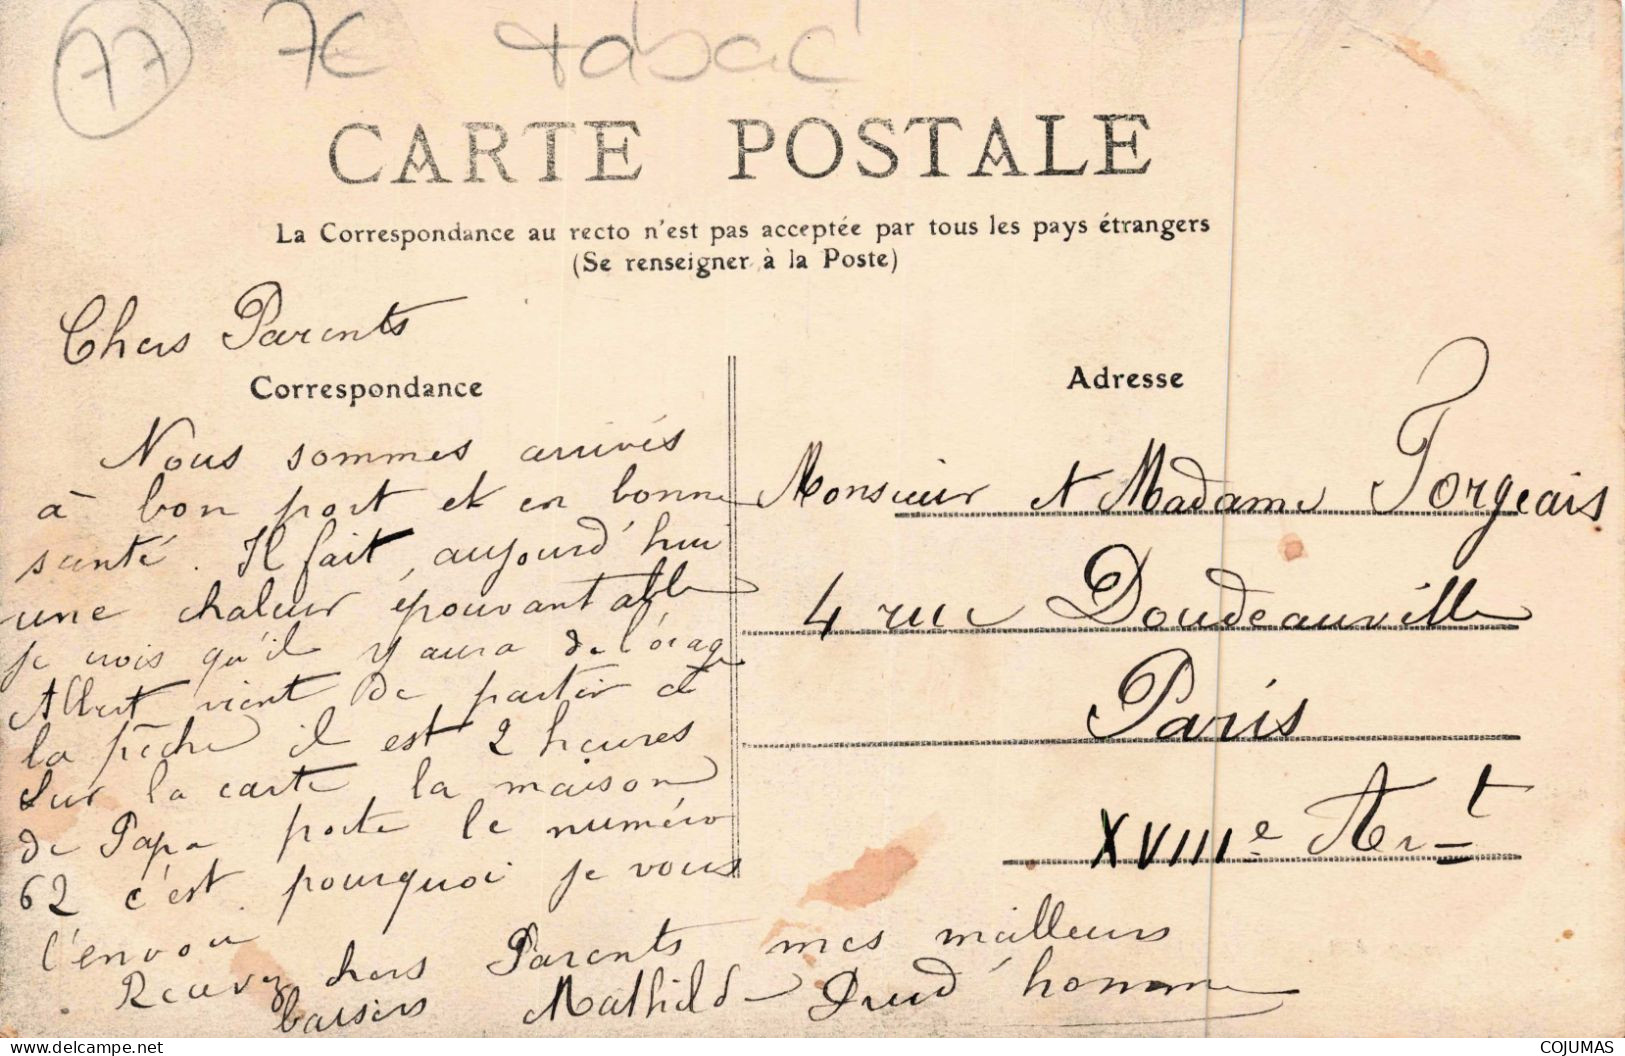 77 7€ tabac
CARTE POSTALE
La Correspondance au recto n'est pas acceptée par tous les pays étrangers
(Se renseigner à la Poste)
Chers Parents
Correspondance
Nous sommes arrivés
à bon port et en bonne
santé. Il fait aujourd'hui
une chaleur épouvantable
je crois qu'il y aura de l'orage
Albert vient de partir à
la pêche il est 2 heures
Sur la carte la maison
de Papa porte le numéro
62 c'est pourquoi je vous
l'envoie
Recevez chers Parents mes meilleurs
baisers Mathilde Prud'homme
Adresse
Monsieur et Madame Forgeais
4 rue Doudeauville
Paris
XVIIIe Arr-t
COJUMAS